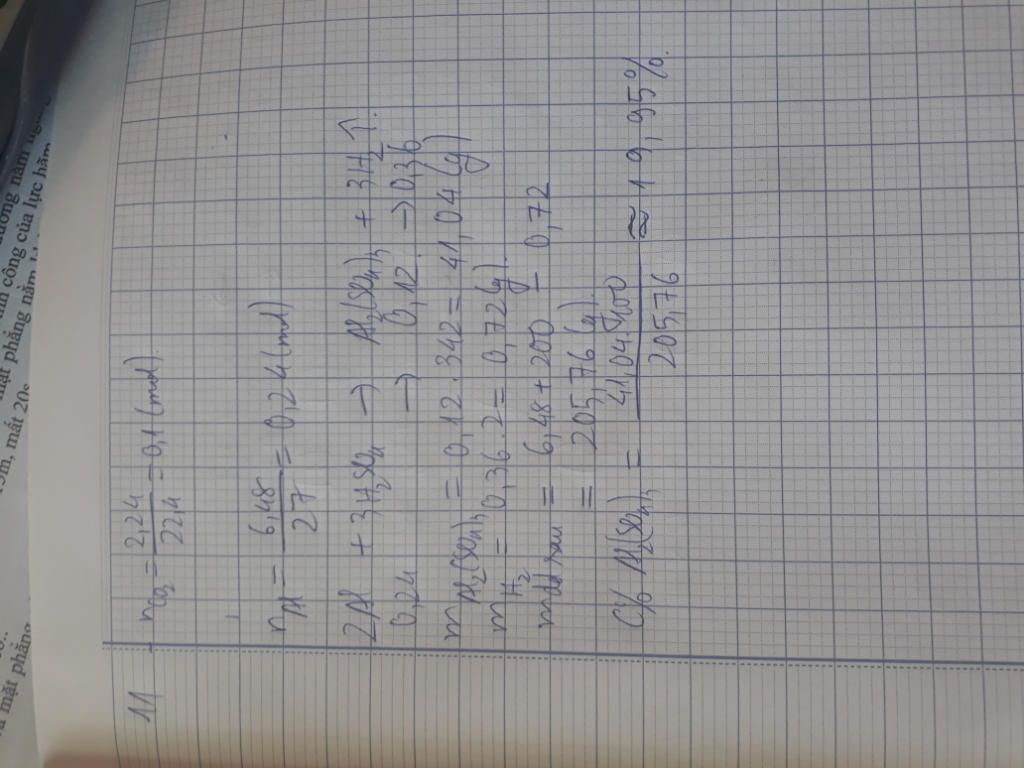 11
n_CO2 = 2,24 / 22,4 = 0,1 (mol)
n_Al = 6,48 / 27 = 0,24 (mol)
2Al + 3H2SO4 → Al2(SO4)3 + 3H2 ↑.
0,24 → 0,12 → 0,36
m_Al2(SO4)3 = 0,12 . 342 = 41,04 (g)
m_H2 = 0,36 . 2 = 0,72 (g).
mdd sau = 6,48 + 200 - 0,72
= 205,76 (g).
C% Al2(SO4)3 = 41,04 . 100 / 205,76 ≈ 19,95%.
mất 20s
mặt phẳng
mặt phẳng nằm
công của lực hãm